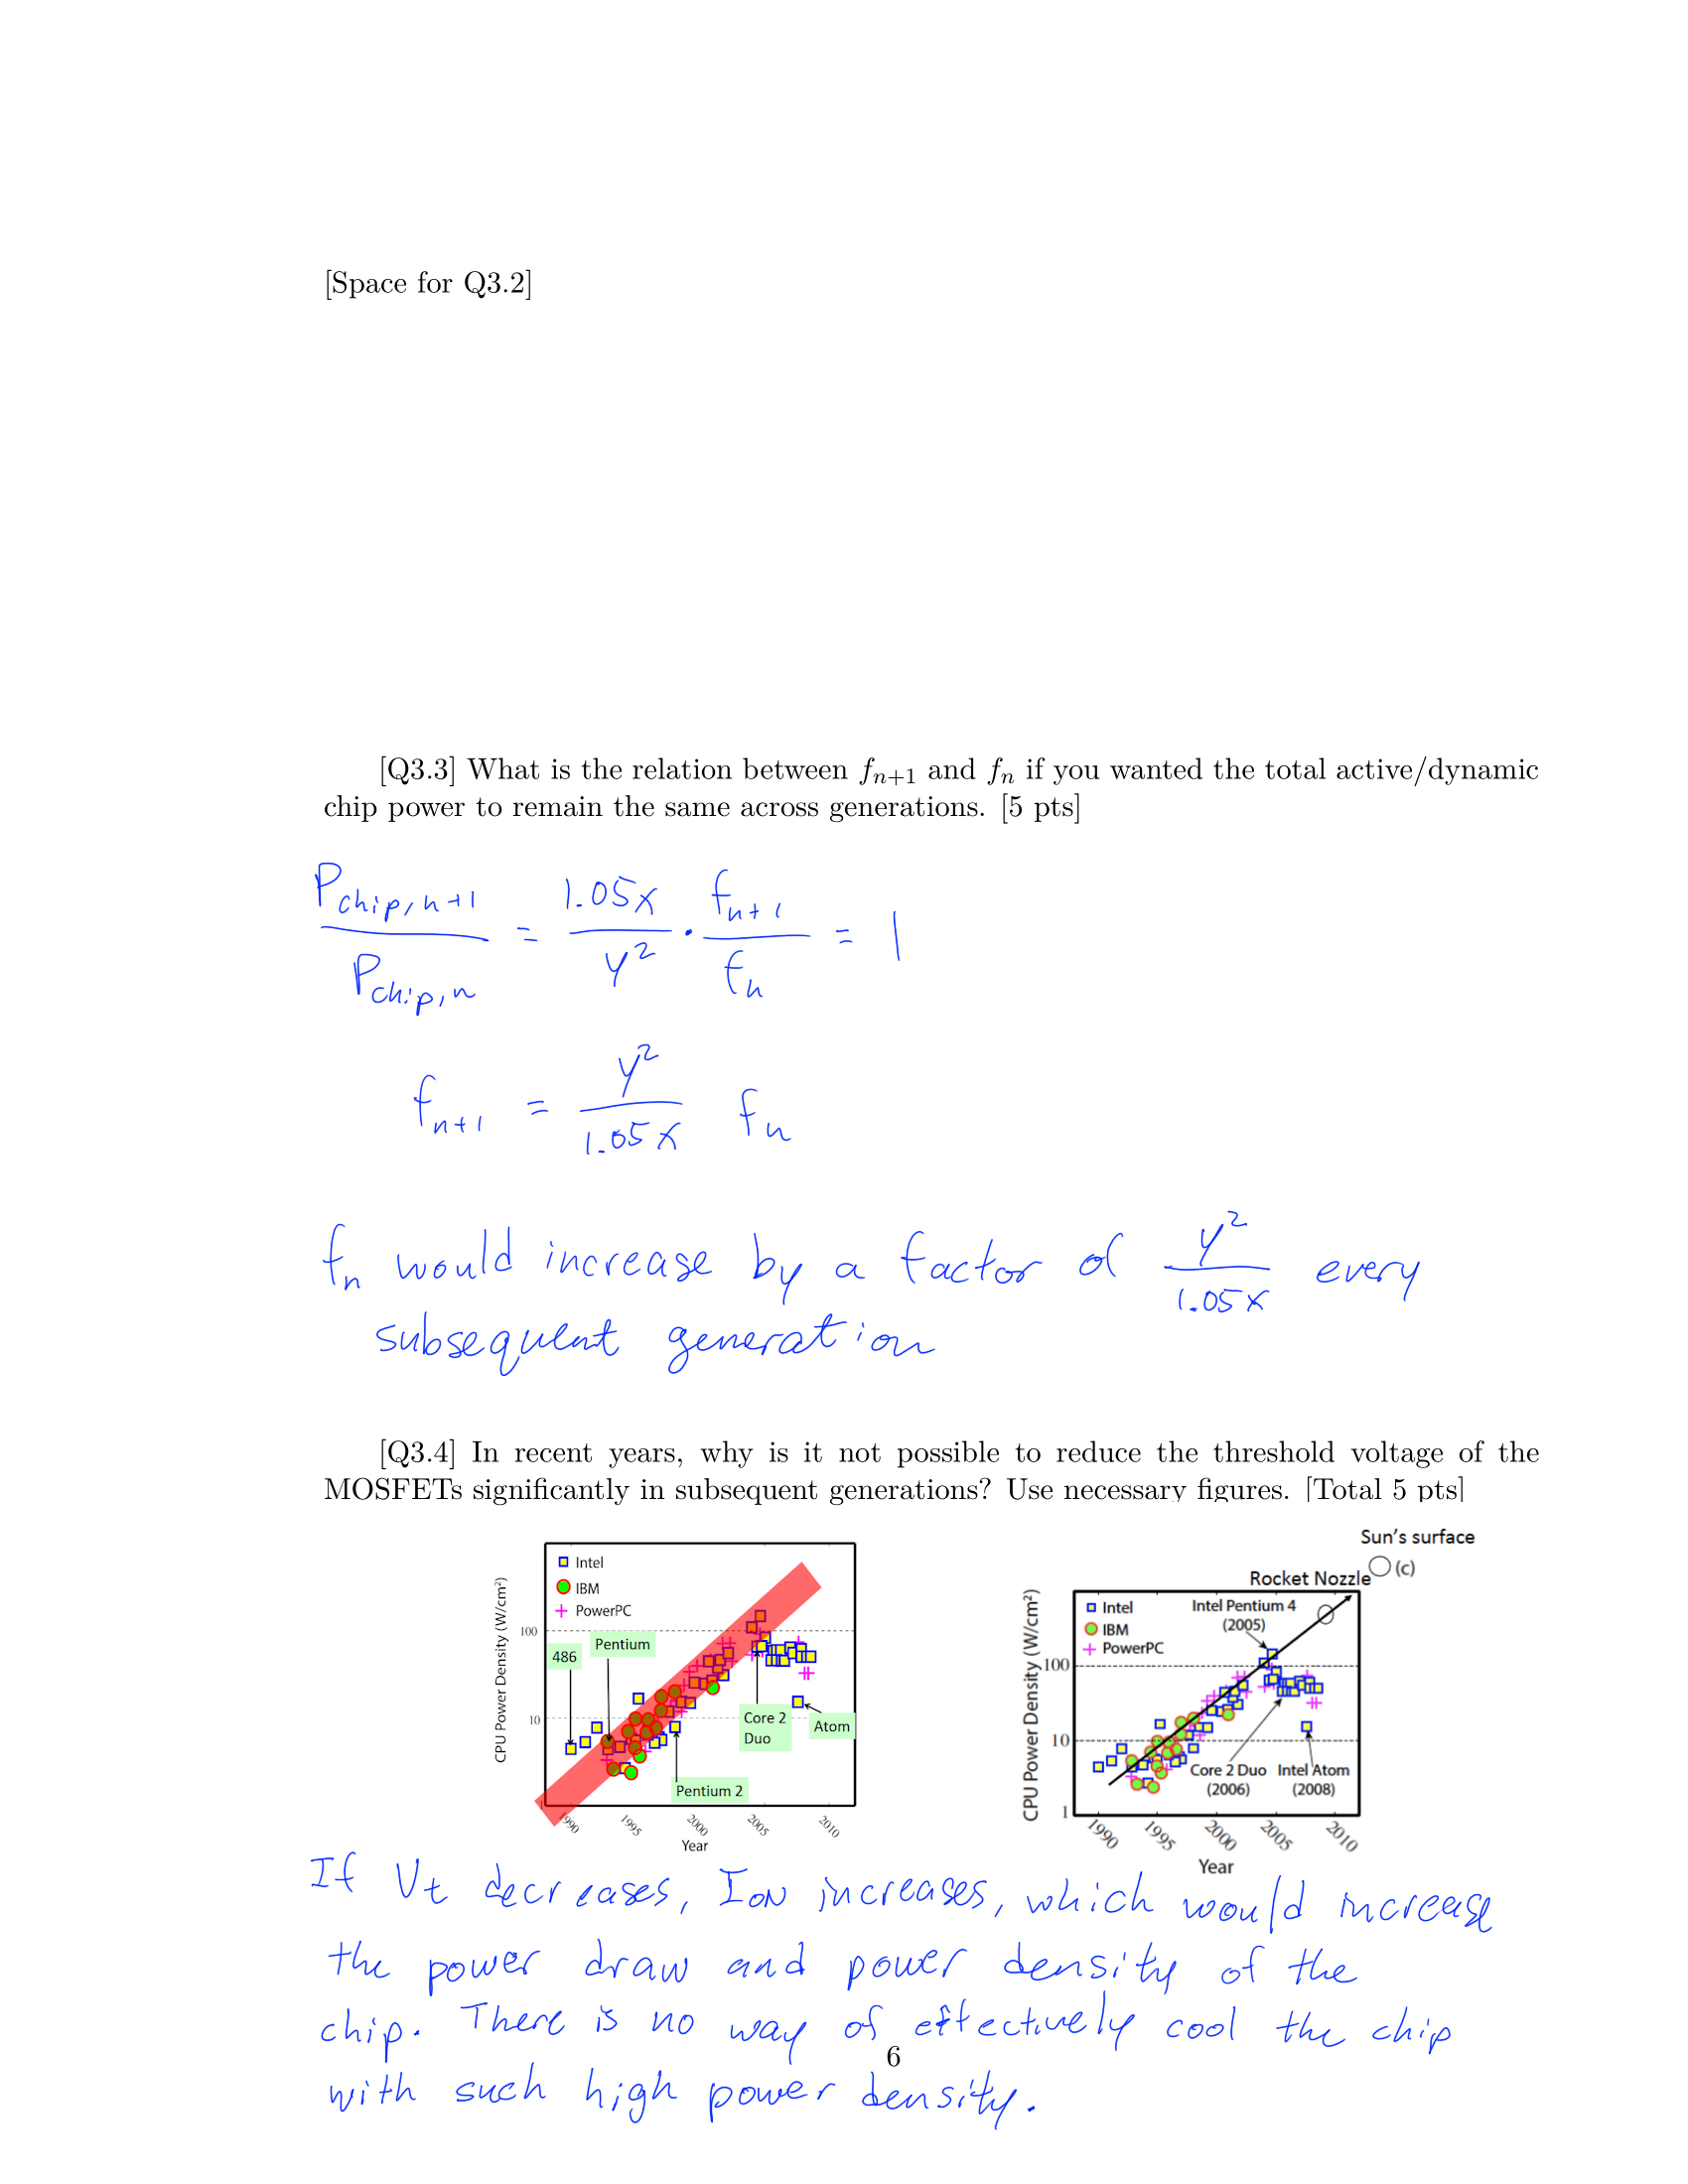 [Space for Q3.2]
[Q3.3] What is the relation between fₙ₊₁ and fₙ if you wanted the total active/dynamic
chip power to remain the same across generations. [5 pts]
P_chip,n+1 / P_chip,n = 1.05x / y² · fₙ₊₁ / fₙ = 1
fₙ₊₁ = y² / 1.05x fₙ
fₙ would increase by a factor of y² / 1.05x every
subsequent generation
[Q3.4] In recent years, why is it not possible to reduce the threshold voltage of the
MOSFETs significantly in subsequent generations? Use necessary figures. [Total 5 pts]
CPU Power Density (W/cm²)
Intel
IBM
PowerPC
100
10
486
Pentium
Core 2
Duo
Atom
Pentium 2
1990 1995 2000 2005 2010
Year
Sun's surface
(c)
Rocket Nozzle
CPU Power Density (W/cm²)
Intel
IBM
PowerPC
Intel Pentium 4
(2005)
100
10
1
Core 2 Duo
(2006)
Intel Atom
(2008)
1990 1995 2000 2005 2010
Year
If Vt decreases, ION increases, which would increase
the power draw and power density of the
chip. There is no way of effectively cool the chip
6
with such high power density.